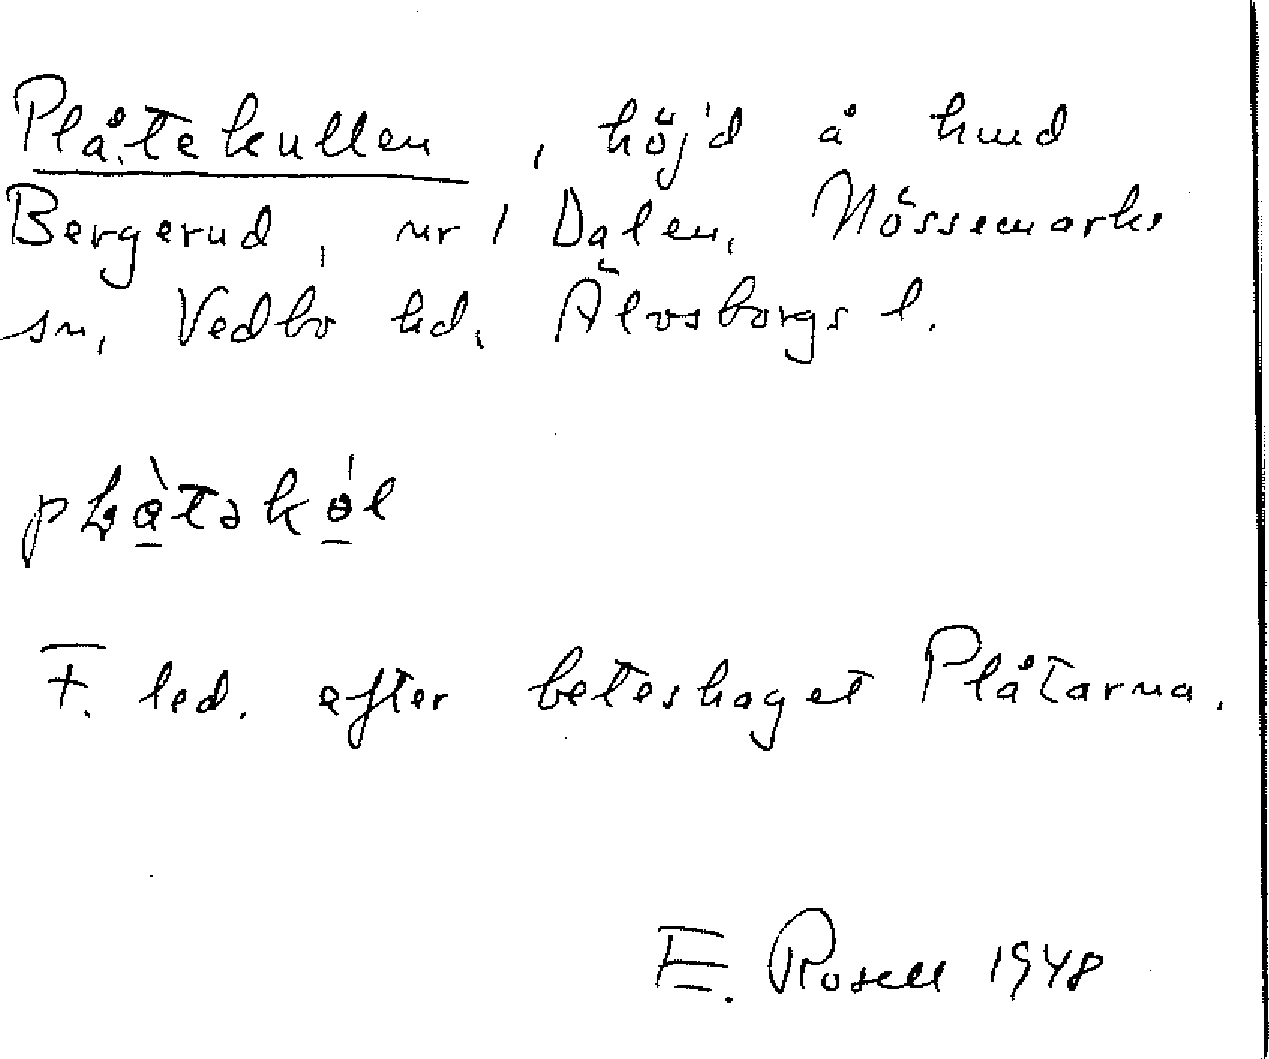 Plåtekullen, höjd å hmd
Bergerud, nr 1 Dalen, Nössemarks
sn, Vedbo hd, Älvsborgs l.
F. led. efter beteshaget Plåtarna.
E. Rosell 1948